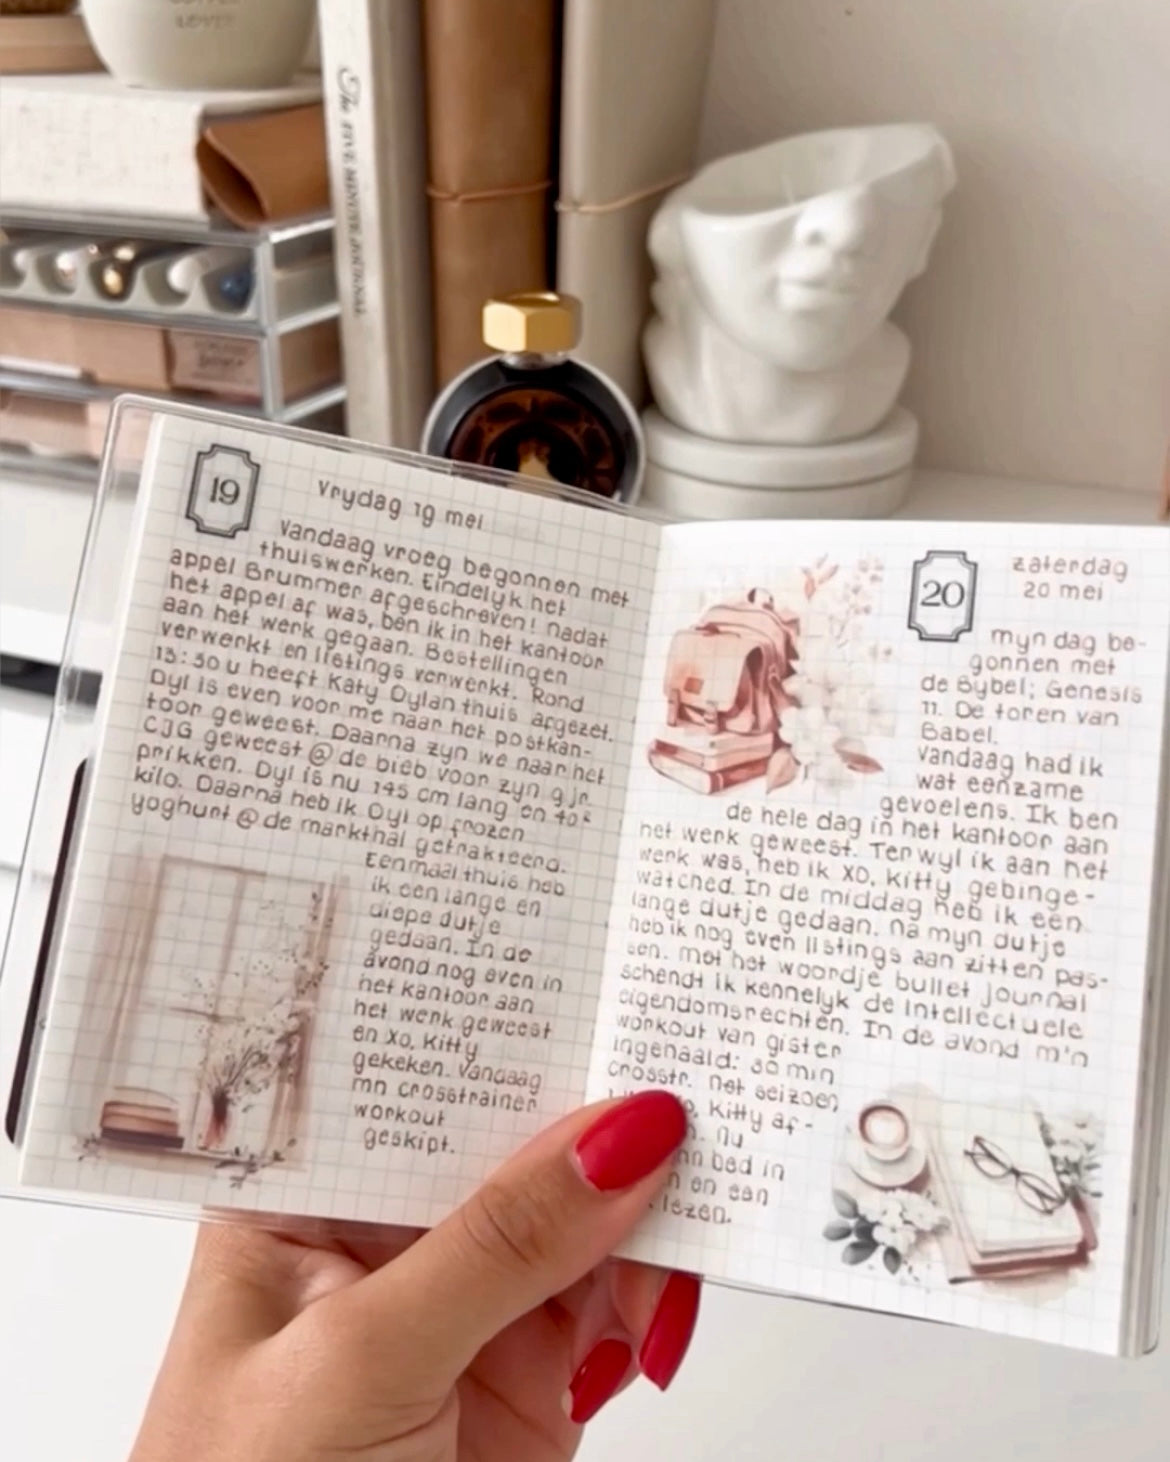 LOVER
The FIVE MINUTE JOURNAL
19
Vrydag 19 mei
Vandaag vroeg begonnen met
thuiswerken. Eindelyk het
appel Brummer afgeschreven! Nadat
het appel af was, ben ik in het kantoor
aan het werk gegaan. Bestellingen
verwerkt en listings verwerkt. Rond
13:30u heeft Katy Dylan thuis afgezet.
Dyl is even voor me naar het postkan-
toor geweest. Daarna zyn we naar het
CJG geweest @ de bieb voor zyn 9 jr.
prikken. Dyl is nu 145 cm lang en
kilo. Daarna heb ik Dyl op frozen
yoghurt @ de markthal getrakteerd.
Eenmaal thuis heb
ik een lange en
diepe dutje
gedaan. In de
avond nog even in
het kantoor aan
het werk geweest
en XO, Kitty
gekeken. Vandaag
mn crosstrainer
workout
geskipt.
20
zaterdag
20 mei
myn dag be-
gonnen met
de Bybel; Genesis
11. De toren van
Babel.
Vandaag had ik
wat eenzame
gevoelens. Ik ben
de hele dag in het kantoor aan
het werk geweest. Terwyl ik aan het
werk was, heb ik XO, Kitty gebinge-
watched. In de middag heb ik een
lange dutje gedaan. Na myn dutje
heb ik nog even listings aan zitten pas-
sen. met het woordje bullet journal
schendt ik kennelyk de Intellectuele
eigendomsrechten. In de avond m'n
workout van gister
ingehaald: 30 min
crosstr. Het seizoen
Kitty af-
nu
bed in
en een
lezen.